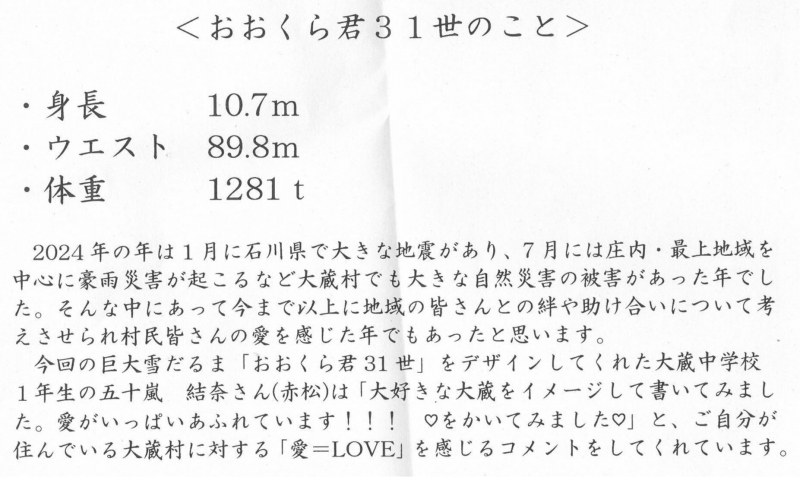 ＜おおくら君３１世のこと＞
・身長　　　10.7m
・ウエスト　89.8m
・体重　　　1281ｔ
　2024年の年は１月に石川県で大きな地震があり、７月には庄内・最上地域を
中心に豪雨災害が起こるなど大蔵村でも大きな自然災害の被害があった年でし
た。そんな中にあって今まで以上に地域の皆さんとの絆や助け合いについて考
えさせられ村民皆さんの愛を感じた年でもあったと思います。
　今回の巨大雪だるま「おおくら君31世」をデザインしてくれた大蔵中学校
１年生の五十嵐　結奈さん(赤松)は「大好きな大蔵をイメージして書いてみまし
た。愛がいっぱいあふれています！！！　♡をかいてみました♡」と、ご自分が
住んでいる大蔵村に対する「愛＝LOVE」を感じるコメントをしてくれています。